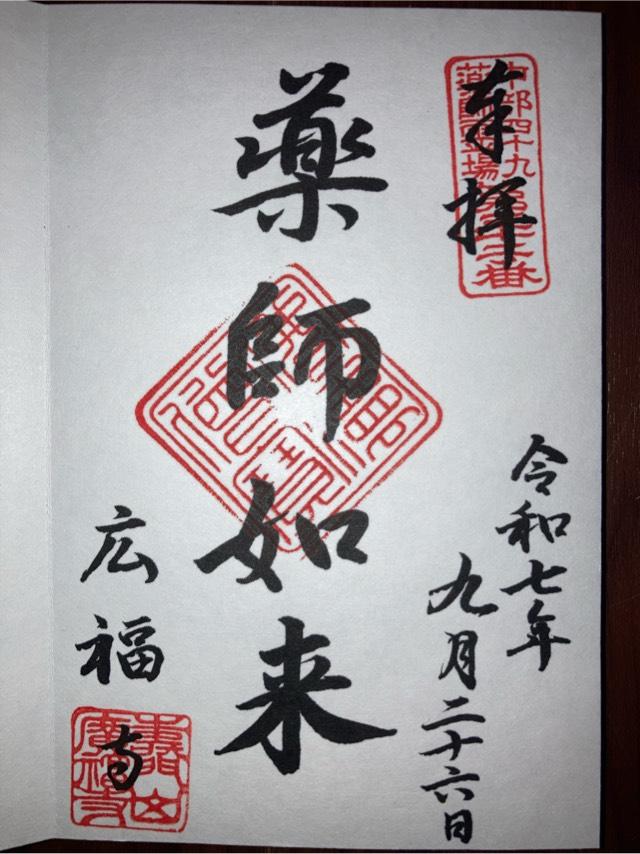 奉拝
中部四十九
薬師霊場
令和七年
九月二十六日
薬師如来
広福寺
廣福寺